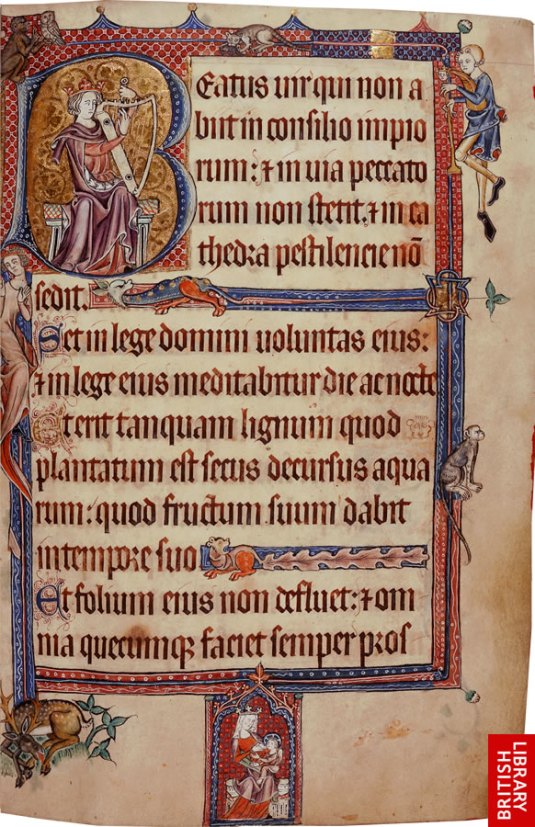 Beatus uir qui non a
biit in consilio impio
rum: ⁊ in uia peccato
rum non stetit. ⁊ in ca
thedra pestilencie nō
sedit.
Set in lege domini uoluntas eius:
⁊ in lege eius meditabitur die ac nocte
Et erit tanquam lignum quod
plantatum est secus decursus aqua
rum: quod fructum suum dabit
in tempore suo
Et folium eius non defluet: ⁊ om
nia quecumqꝫ faciet semper pros
BRITISH
LIBRARY